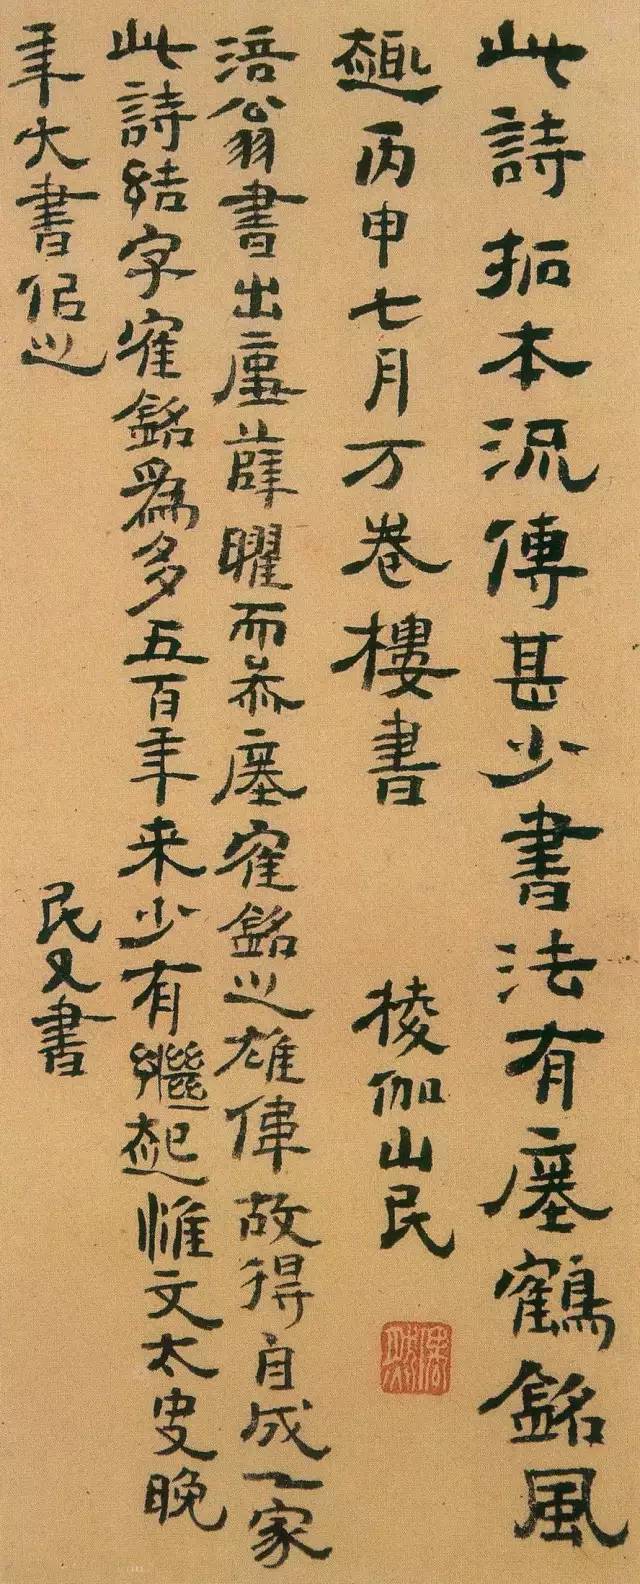 此詩拓本流傳甚少書法有瘞鶴銘風
趣丙申七月万卷樓書 棱伽山民
涪翁書出薛曜而叅瘞寉銘之雄偉故得自成一家
此詩結字寉銘為多五百年来少有繼起惟文太史晚
年大書佀之 民又書